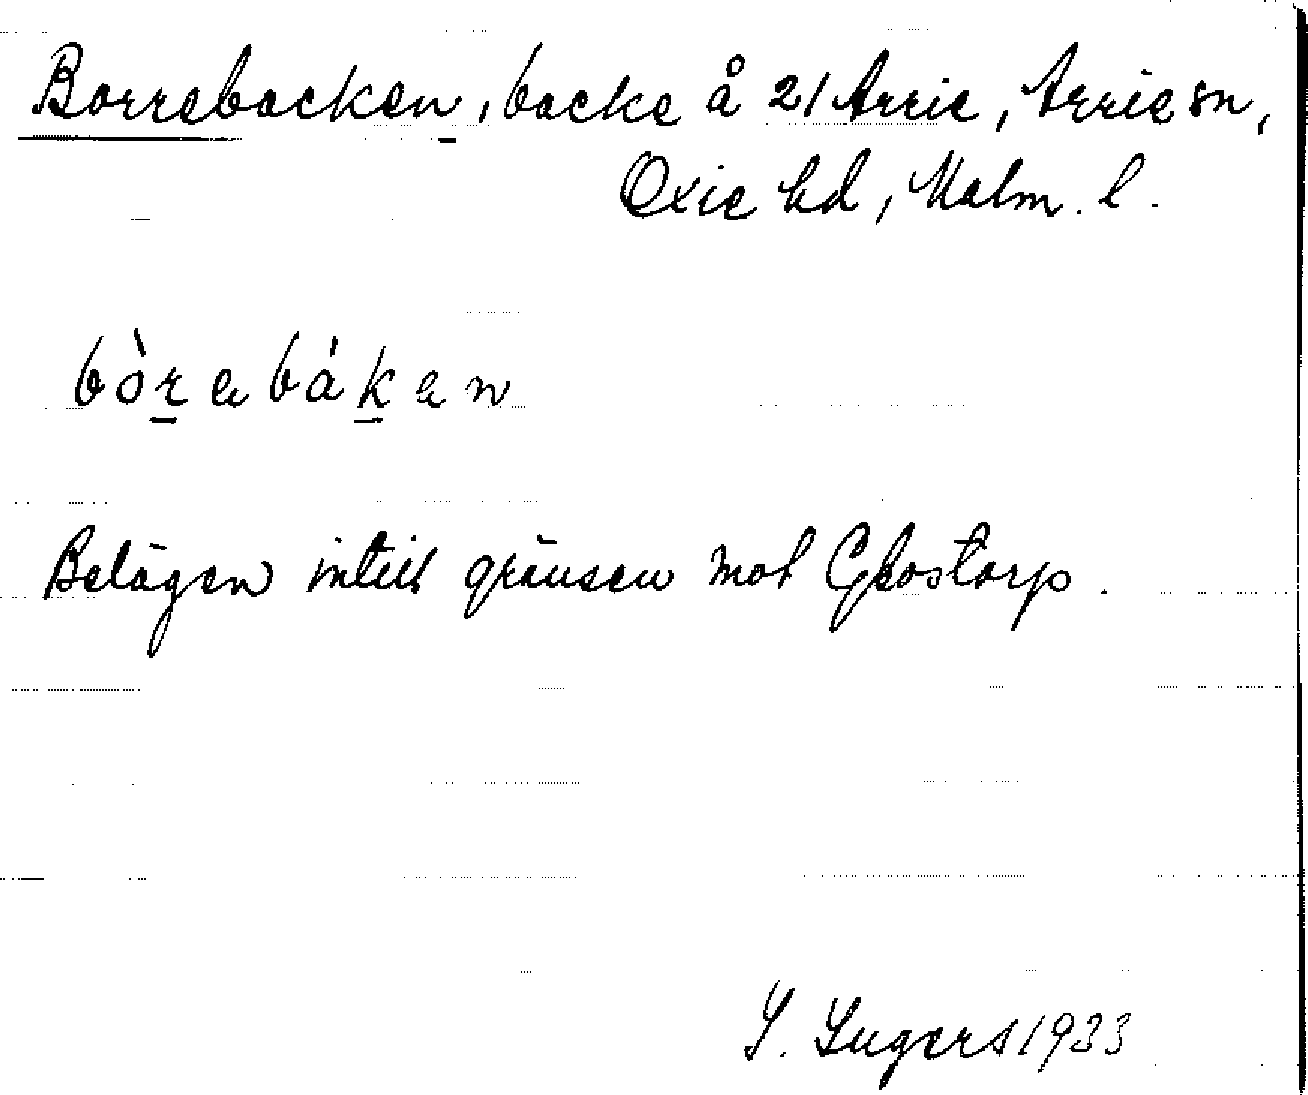 Borrebacken, backe å 21 Arrie, Arrie sn,
Oxie hd, Malm. l.
bòrabákan
Belägen intill gränsen mot Glostorp.
I. Ingers 1933